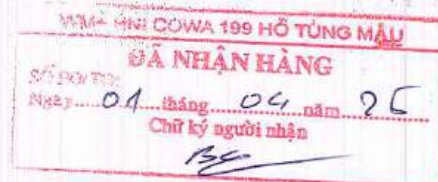 WM+ HNI COWA 199 HỒ TÙNG MẬU
ĐÃ NHẬN HÀNG
SỐ PO/TO:
Ngày.....01....tháng.....04....năm..25......
Chữ ký người nhận